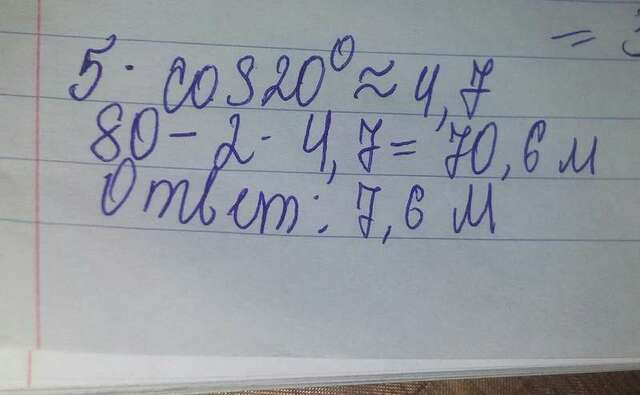 = 3
5 · cos20° ≈ 4,7
80 - 2 · 4,7 = 70,6 м
Ответ: 7,6 м